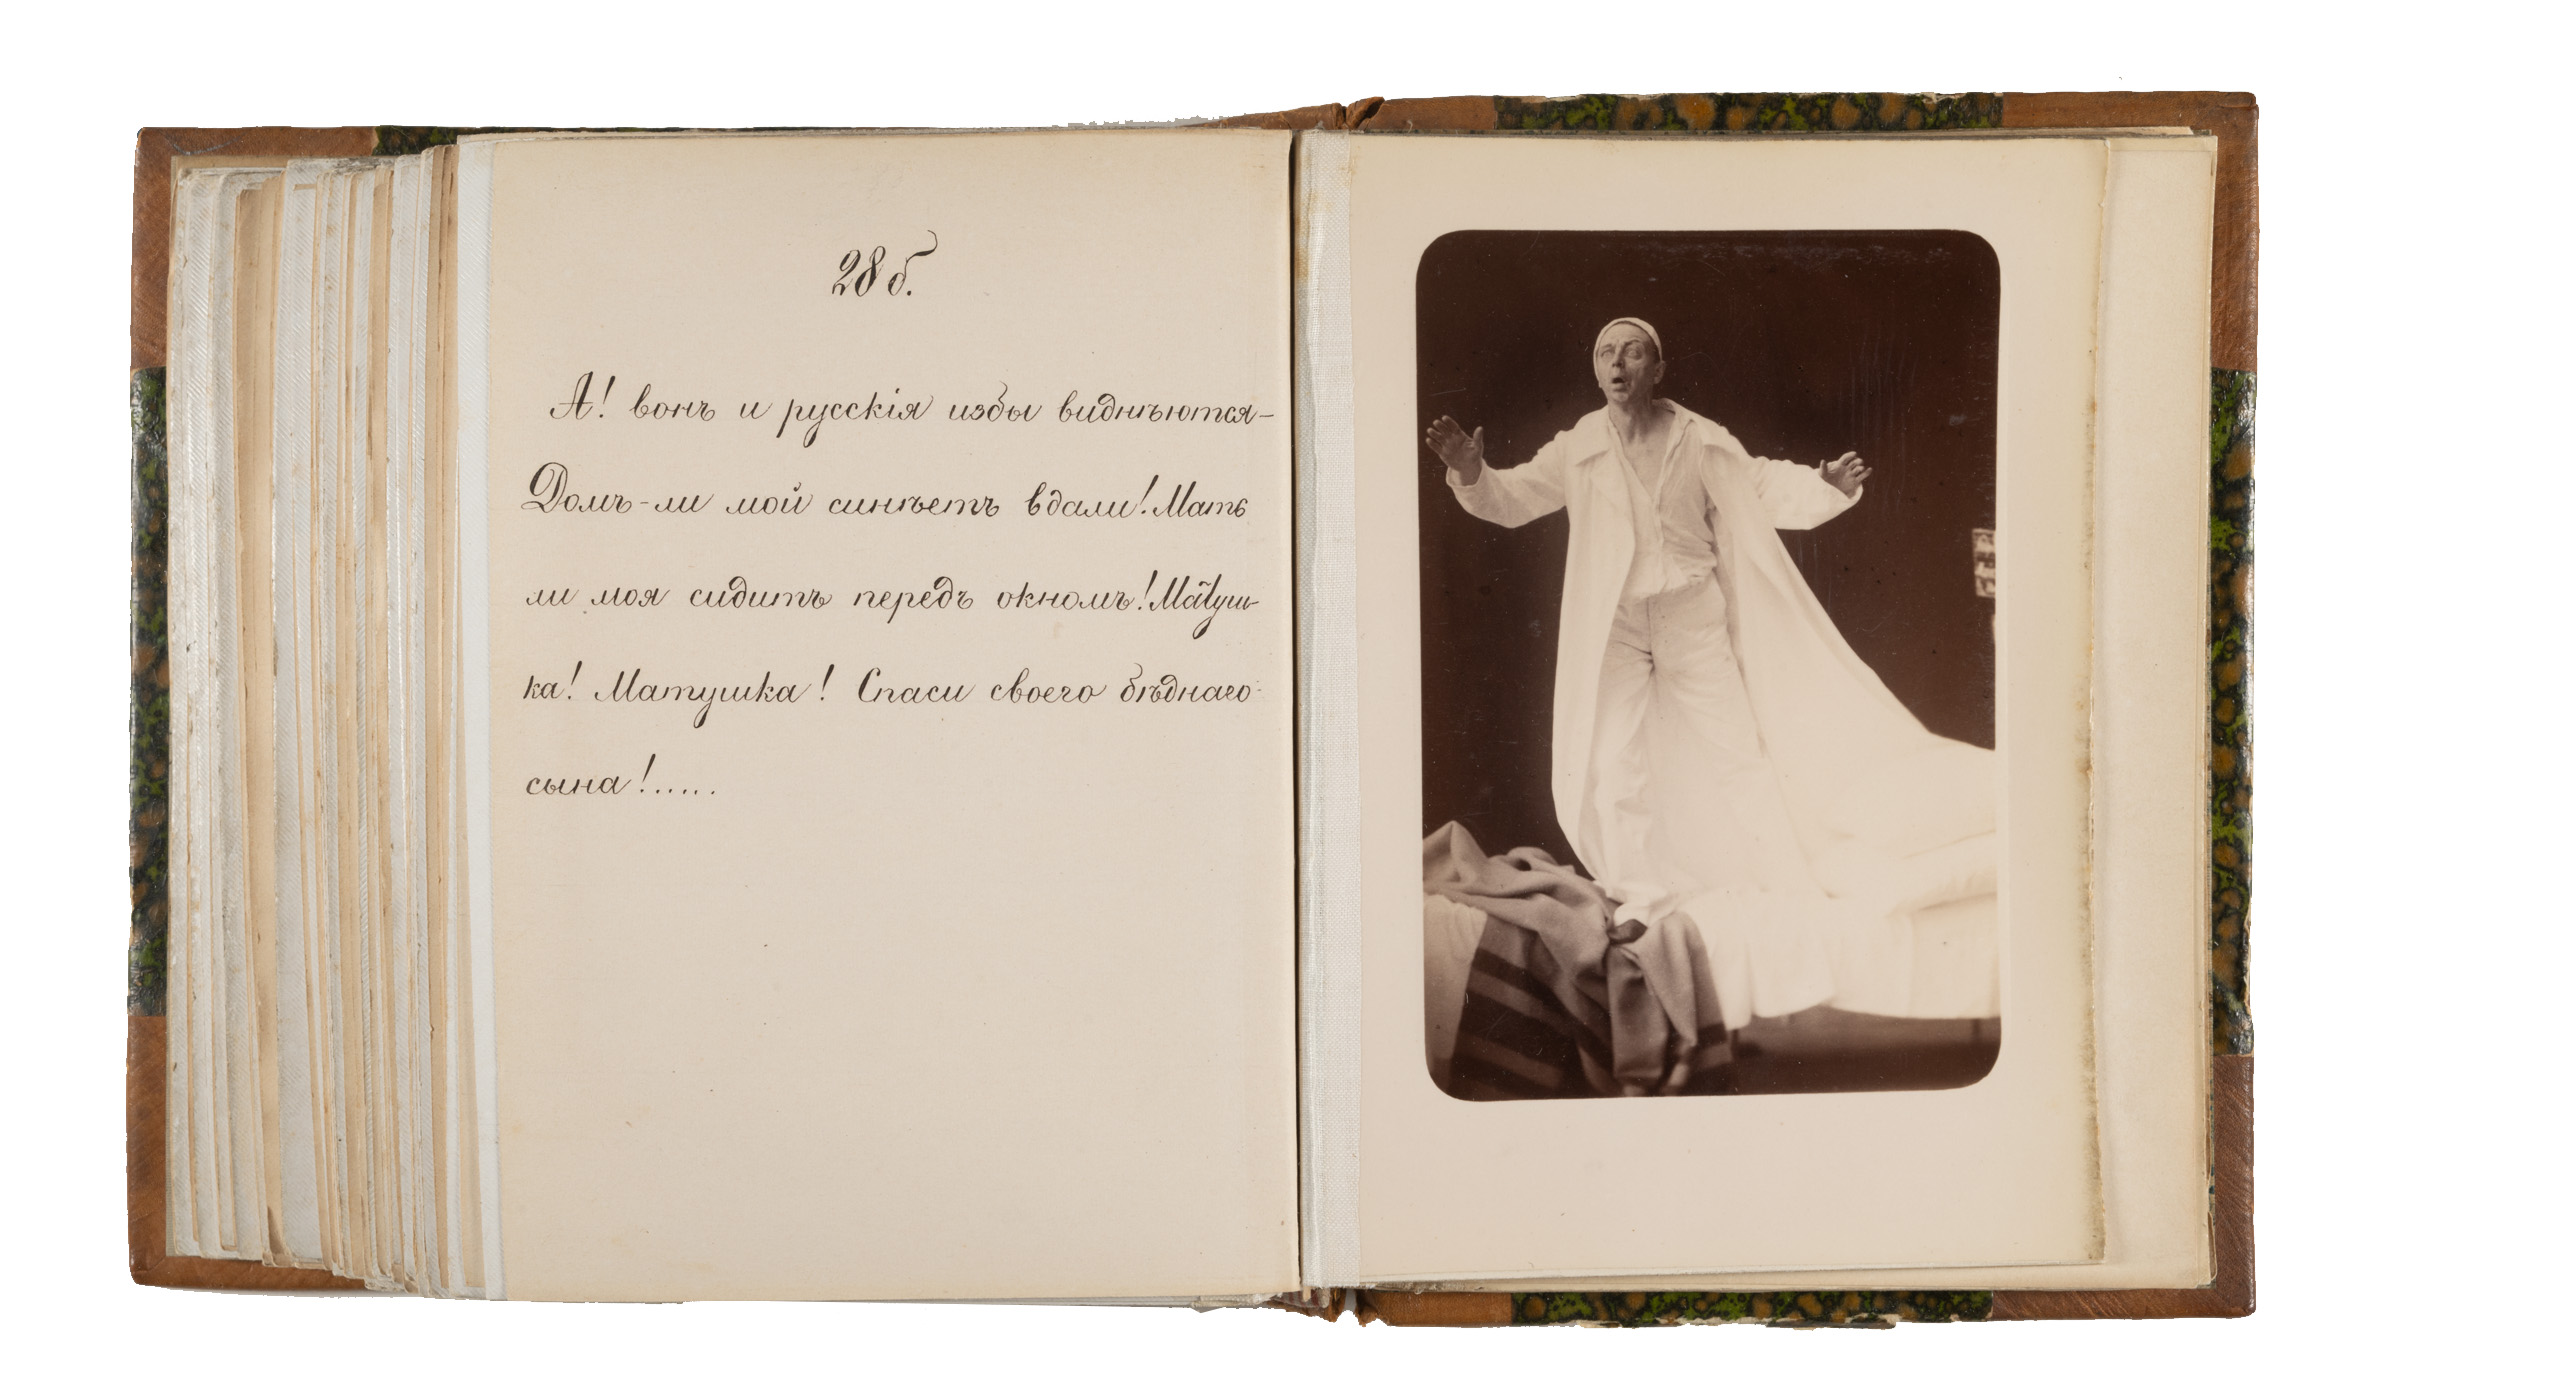 28 б.
А! вонъ и русскія избы виднѣются–
Домъ-ли мой синѣетъ вдали! Мать
ли моя сидитъ передъ окномъ! Матуш-
ка! Матушка! Спаси своего бѣднаго
сына!.....